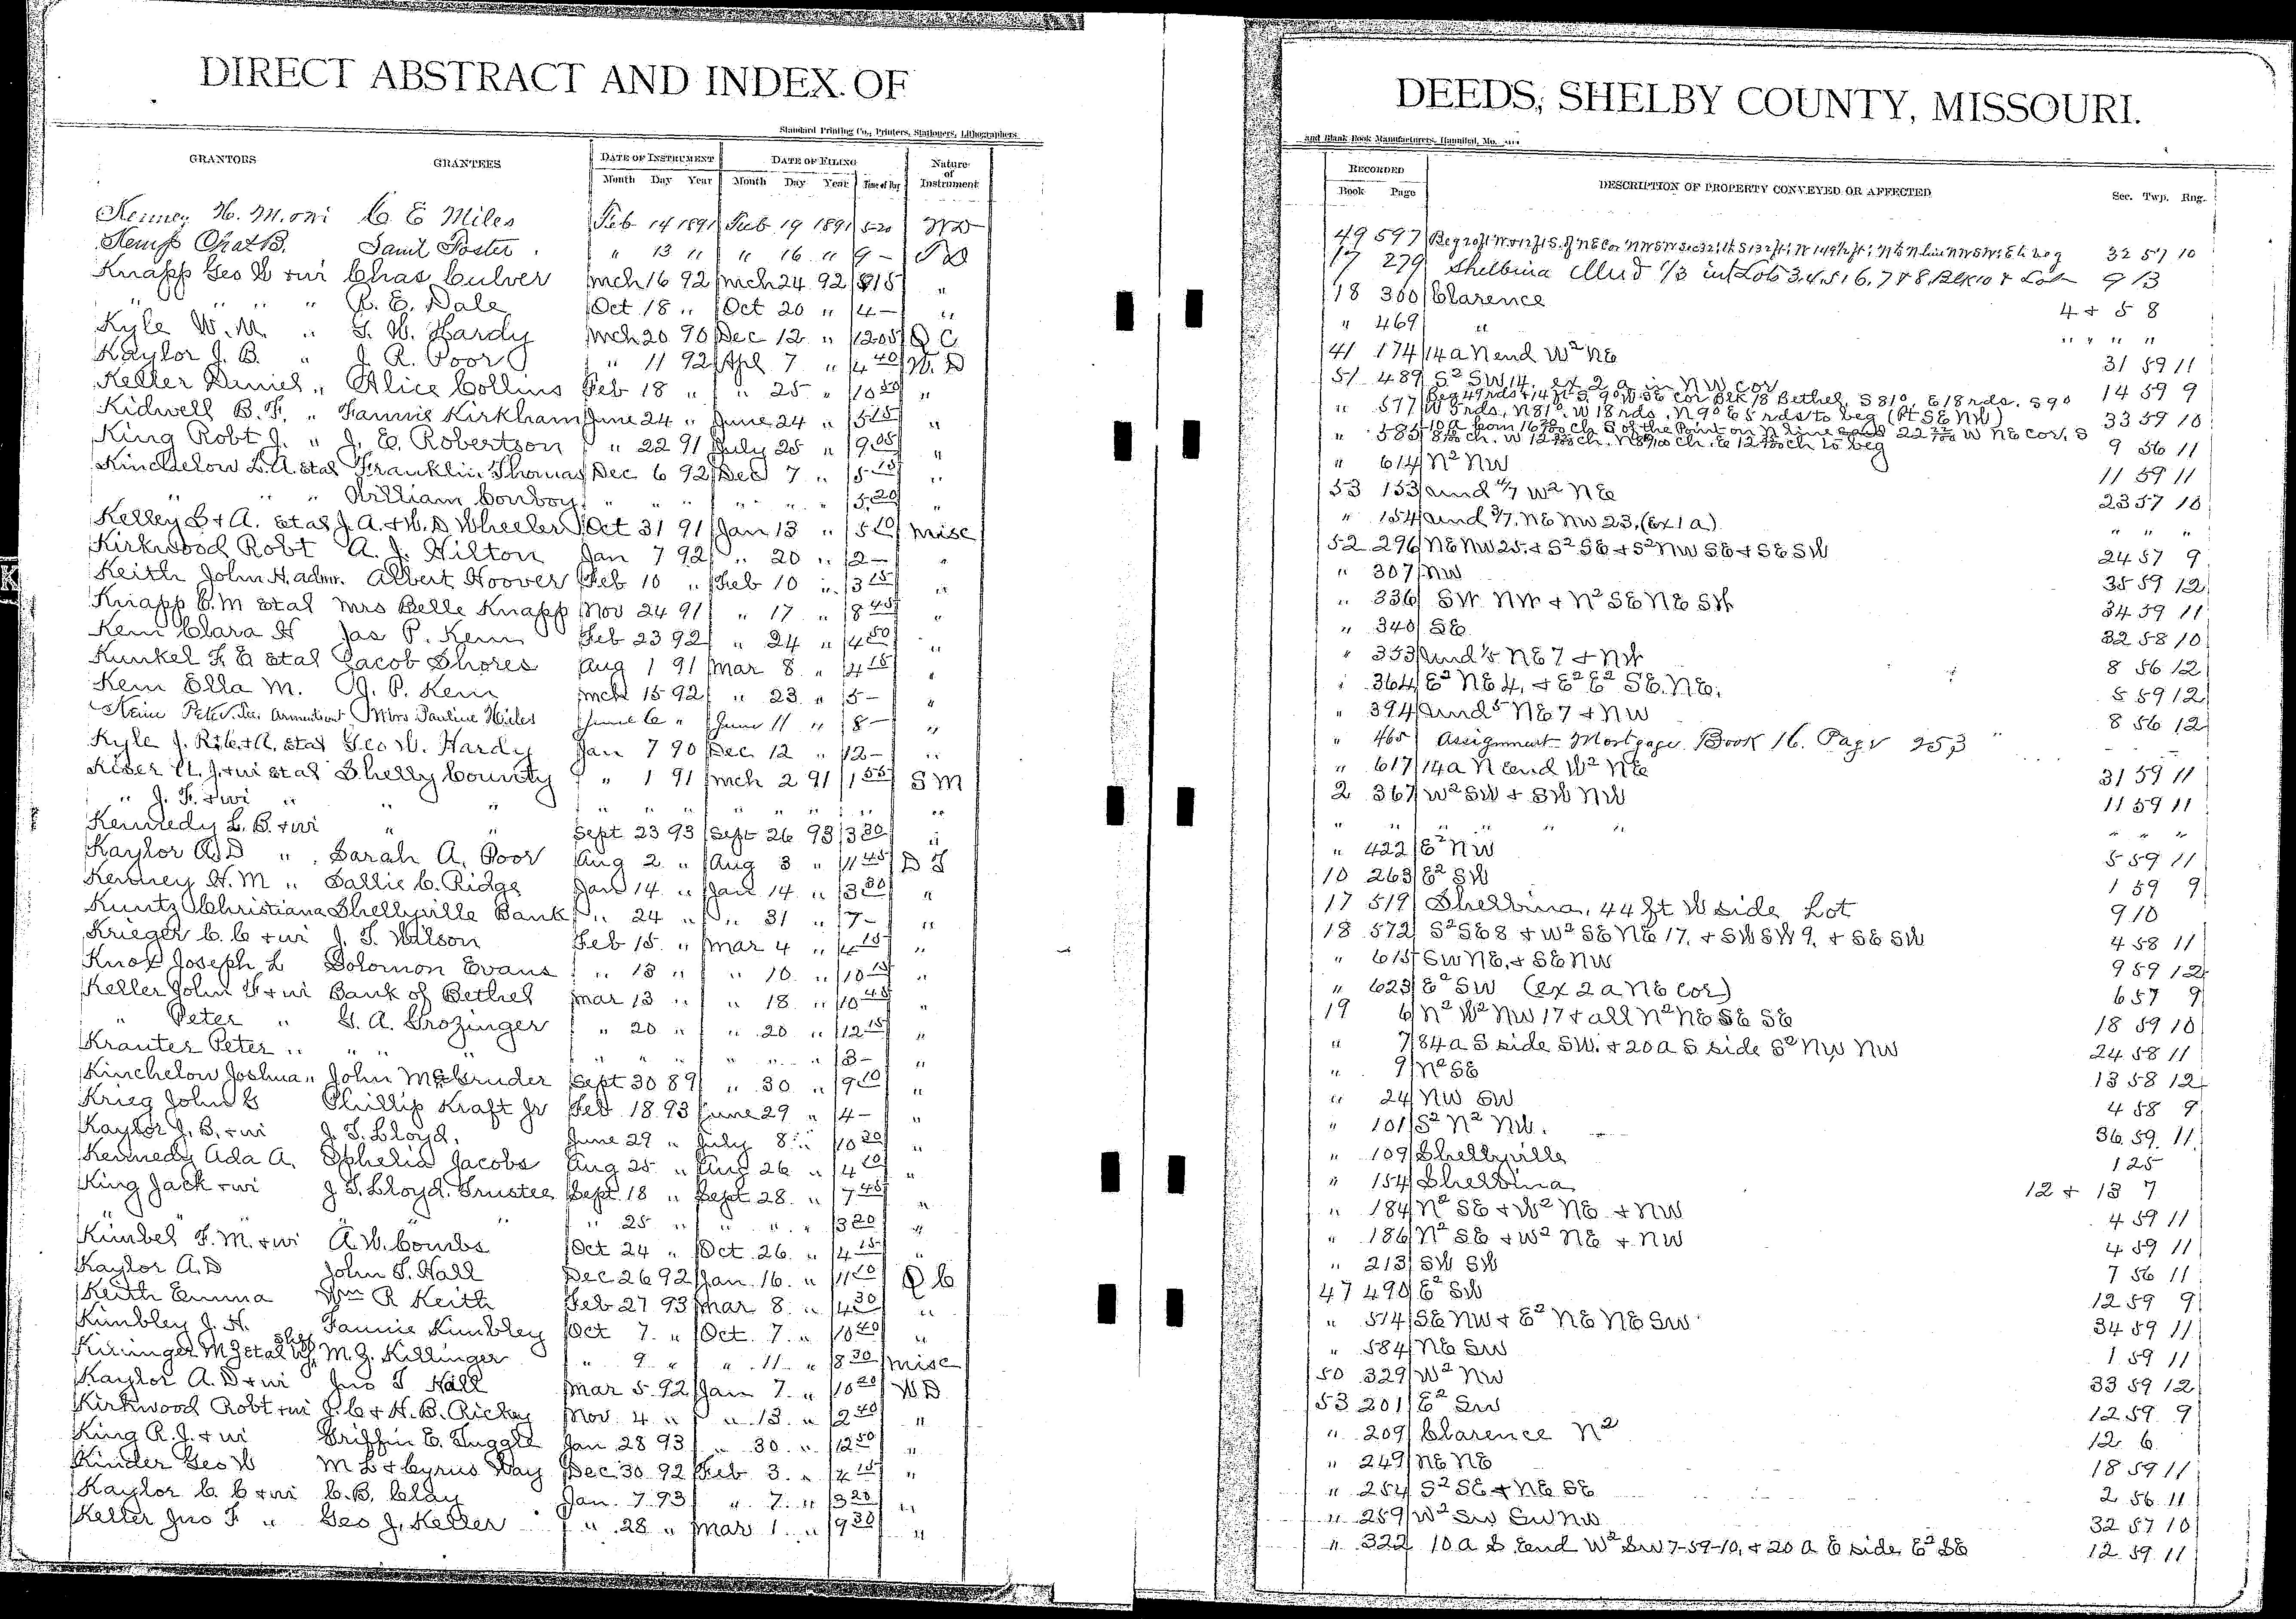 DIRECT ABSTRACT AND INDEX OF
Standard Printing Co., Printers, Stationers, Lithographers
GRANTORS GRANTEES DATE OF INSTRUMENT DATE OF FILING Nature of Instrument
Month Day Year Month Day Year Time of Day
Kenney H. M. & wi C. E Miles Feb 14 1891 Feb 19 1891 5 20 WD
Kemp Chas B. Saml Foster " 13 " " 16 " 9 -
Knapp Geo W & wi Chas Culver Mch 16 92 Mch 24 92 8 15 "
" " " " R. E. Dale Oct 18 " Oct 20 " 4 - "
Kyle W. M. " G. W. Hardy Mch 20 90 Dec 12 " 12 05 Q C
Kaylor J. B. " J. R. Poor " 11 92 Apl 7 " 4 40 W. D
Keller Daniel " Alice Collins Feb 18 " " 25 " 10 50 "
Kidwell B. F. " Fannie Kirkham June 24 " June 24 " 5 15 "
King Robt J. " J. E. Robertson " 22 91 July 25 " 9 05 "
Kinchelow L. A. et al Franklin Thomas Dec 6 92 Dec 7 " 5 15 "
" " " William Conboy " " " " " " 5 20 "
Kelley L & A. et al J. A. & W. D Wheeler Oct 31 91 Jan 13 " 5 10 Misc
Kirkwood Robt A. J. Hilton Jan 7 92 " 20 " 2 - "
Keith John H. admr. Albert Hoover Feb 10 " Feb 10 " 3 15 "
Knapp C. M et al Mrs Belle Knapp Nov 24 91 " 17 " 8 45 "
Kem Clara H Jas P. Kem Feb 23 92 " 24 " 4 50 "
Kunkel F. E et al Jacob Shores Aug 1 91 Mar 8 " 4 15 "
Kem Ella M. J. P. Kem Mch 15 92 " 23 " 5 - "
Peter Mrs Pauline June 6 " June 11 " 8 - "
Kyle J. R. & A. et al Geo W. Hardy Jan 7 90 Dec 12 " 12 - "
Kiser J. & wi et al Shelby County " 1 91 Mch 2 91 1 55 S M
" J. F. & wi " " " " " " " " " " "
Kennedy L. B. & wi " " Sept 23 93 Sept 26 93 3 30 "
Kaylor A. D " Sarah A. Poor Aug 2 " Aug 3 " 11 45 D T
Kenney H. M " Sallie C. Ridge Jan 14 " Jan 14 " 3 30 "
Kuntz Christiana Shelbyville Bank " 24 " " 31 " 7 - "
Krieger C. C & wi J. T. Wilson Feb 15 " Mar 4 " 4 15 "
Knox Joseph L Solomon Evans " 13 " " 10 " 10 15 "
Keller John F & wi Bank of Bethel Mar 13 " " 18 " 10 45 "
" Peter " G. A. Grozinger " 20 " " 20 " 12 15 "
Krauter Peter " " " " " " " " " " 3 - "
Kinchelow Joshua " John McGruder Sept 30 89 " 30 " 9 10 "
Krieg John G Phillip Kraft Jr Feb 18 93 June 29 " 4 - "
Kaylor J. B. & wi J. T. Lloyd. June 29 " July 8 " 10 20 "
Kennedy Ada A. Ophelia Jacobs Aug 25 " Aug 26 " 4 10 "
King Jack & wi J T. Lloyd. Trustee Sept 18 " Sept 28 " 7 45 "
" " " " " 25 " " " " 3 20 "
Kimbel F. M. & wi A. W. Combs Oct 24 " Oct 26 " 4 15 "
Kaylor A. D John T. Hall Dec 26 92 Jan 16 " 11 10 Q C
Keith Emma Wm R Keith Feb 27 93 Mar 8 " 4 30 "
Kimbley J. H. Fannie Kimbley Oct 7 " Oct 7 " 10 40 "
M Z et al by shff M. Z. Killinger " 9 " " 11 " 8 30 Misc
Kaylor A. D & wi Jno T Hall Mar 5 92 Jan 7 " 10 20 W D
Kirkwood Robt & wi J. C & H. B. Rickey Nov. 4 " " 13 " 2 40 "
King R. J. & wi Griffin E. Tuggle Jan 28 93 " 30 " 12 50 "
Kinder Geo W M L & Cyrus Way Dec 30 92 Feb 3 " 4 15 "
Kaylor C. C & wi C. B. Clay Jan 7 93 " 7 " 3 20 "
Keller Jno F " Geo J. Keller " 28 " Mar 1 " 9 30 "
K
DEEDS, SHELBY COUNTY, MISSOURI.
and Blank Book Manufacturers, Hannibal, Mo.
RECORDED DESCRIPTION OF PROPERTY CONVEYED OR AFFECTED Sec. Twp. Rng.
Book Page
49 597 32 57 10
17 279 Shelbina Und 1/3 in Lots 3, 4, 5, 6, 7 & 8, Blk 10 & Lot 9 13
18 300 Clarence 4 & 5 8
" 469 " " " " "
41 174 14 a N end W² NE 31 59 11
51 489 S² SW 14. ex 2 a in NW cor 14 59 9
" 577 Beg 49 rds & 14 ft S. 9° W. SE cor Blk 18 Bethel, S 81°, E 18 rds. S 9° W 5 rds, N 81°. W 18 rds. N 9° E 5 rds to beg (Pt SE NW) 33 59 10
" 585 9 56 11
" 614 N² NW 11 59 11
53 153 und 4/7 W² NE 23 57 10
" 154 und 3/7. NE NW 23. (ex 1 a) " " "
52 296 NE NW 25. & S² SE & S² NW SE & SE SW 24 57 9
" 307 NW 35 59 12
" 336 SW NW & N² SE NE SW 34 59 11
" 340 SE 32 58 10
" 353 und 1/5 NE 7 & NW 8 56 12
" 364 E² NE 4. & E² E² SE. NE. 5 59 12
" 394 und 5 NE 7 & NW 8 56 12
" 465 Assignment Mortgage Book 16. Page 253
" 617 14 a N end W² NE 31 59 11
2 367 W² SW & SW NW 11 59 11
" " " " " " " " "
" 422 E² NW 5 59 11
10 263 E² SW 1 59 9
17 519 Shelbina, 44 ft W side Lot 9 10
18 572 S² SE 8 & W² SE NE 17. & SW SW 9. & SE SW 4 58 11
" 615 SW NE. & SE NW 9 59 12
" 623 E² SW (ex 2 a NE cor) 6 57 9
19 6 N² W² NW 17 & all N² NE SE SE 18 59 10
" 7 84 a S side SW. & 20 a S side S² NW NW 24 58 11
" 9 N² SE 13 58 12
" 24 NW SW 4 58 9
" 101 S² N² NW. 36 59 11
" 109 Shelbyville 125
" 154 Shelbina 12 & 13 7
" 184 N² SE & W² NE & NW 4 59 11
" 186 N² SE & W² NE & NW 4 59 11
" 213 SW SW 7 56 11
47 490 E² SW 12 59 9
" 514 SE NW & E² NE NE SW 34 59 11
" 584 NE SW 1 59 11
50 329 W² NW 33 59 12
53 201 E² SW 12 59 9
" 209 Clarence N² 12 6
" 249 NE NE 18 59 11
" 254 S² SE & NE SE 2 56 11
" 259 W² SW SW NW 32 57 10
" 322 10 a S End W² SW 7-59-10, & 20 a E side E² SE 12 59 11